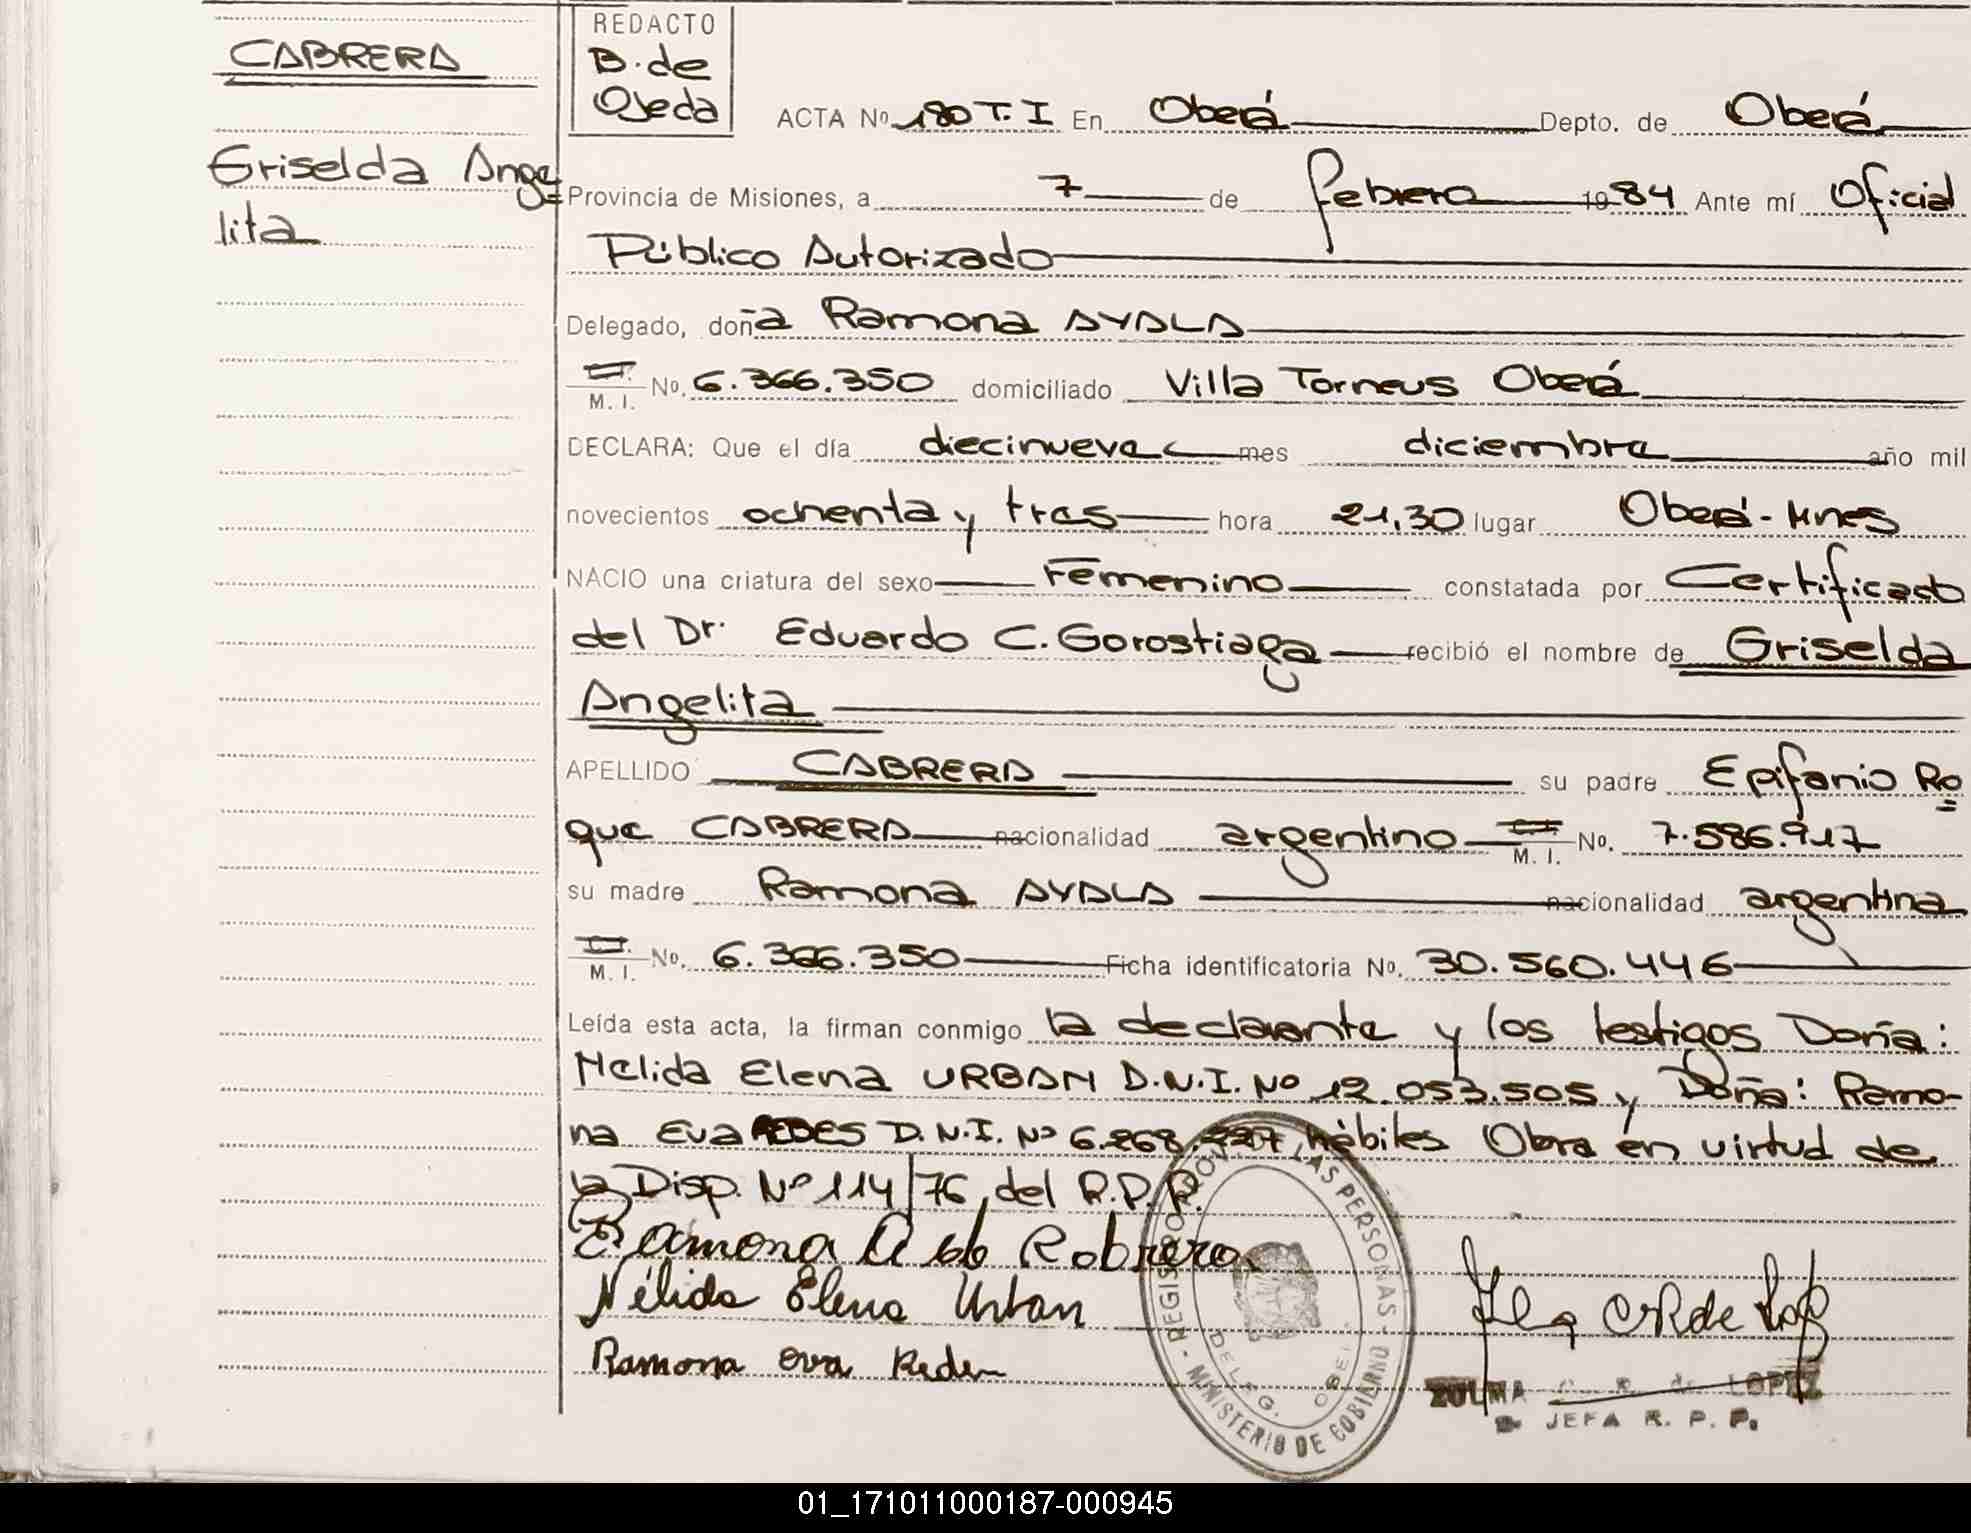 CABRERA
Griselda Ange=
lita
REDACTO
B. de
Ojeda
ACTA No 180 T. I En Oberá Depto. de Oberá
Provincia de Misiones, a 7 de febrero 1984 Ante mí Oficial
Público Autorizado
Delegado, doña Ramona AYALA
M. I. No. 6.366.350 domiciliado Villa Torneus Oberá
DECLARA: Que el día diecinueve mes diciembre año mil
novecientos ochenta y tres hora 21,30 lugar Oberá - Mnes
NACIO una criatura del sexo Femenino constatada por Certificado
del Dr. Eduardo C. Gorostiaga recibió el nombre de Griselda
Angelita
APELLIDO CABRERA su padre Epifanio Ro=
que CABRERA nacionalidad argentino M. I. No. 7.586.917
su madre Ramona AYALA nacionalidad argentina
M. I. No. 6.366.350 Ficha identificatoria No. 30.560.446
Leída esta acta, la firman conmigo la declarante y los testigos Doña:
Nelida Elena URBAN D.N.I. No 12.053.505 y Doña: Ramo-
na Eva D.N.I. No 6.268. hábiles Obra en virtud de
la Disp. No 114/76 del R.P.P.
Ramona A de
Nélida Elena Urban
Ramona eva
REGISTRO PROV. DE LAS PERSONAS - MINISTERIO DE GOBIERNO -
DELEG.
ZULMA de LOPEZ
JEFA R. P. P.
01_171011000187-000945